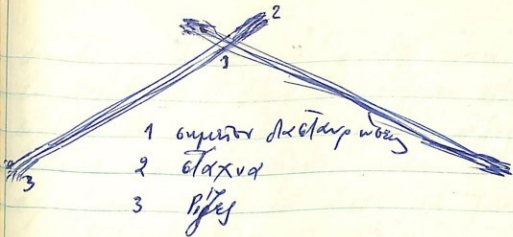 2
1
3
1 σημεῖον διασταυρώσεως
2 στάχυα
3 Ρίζες